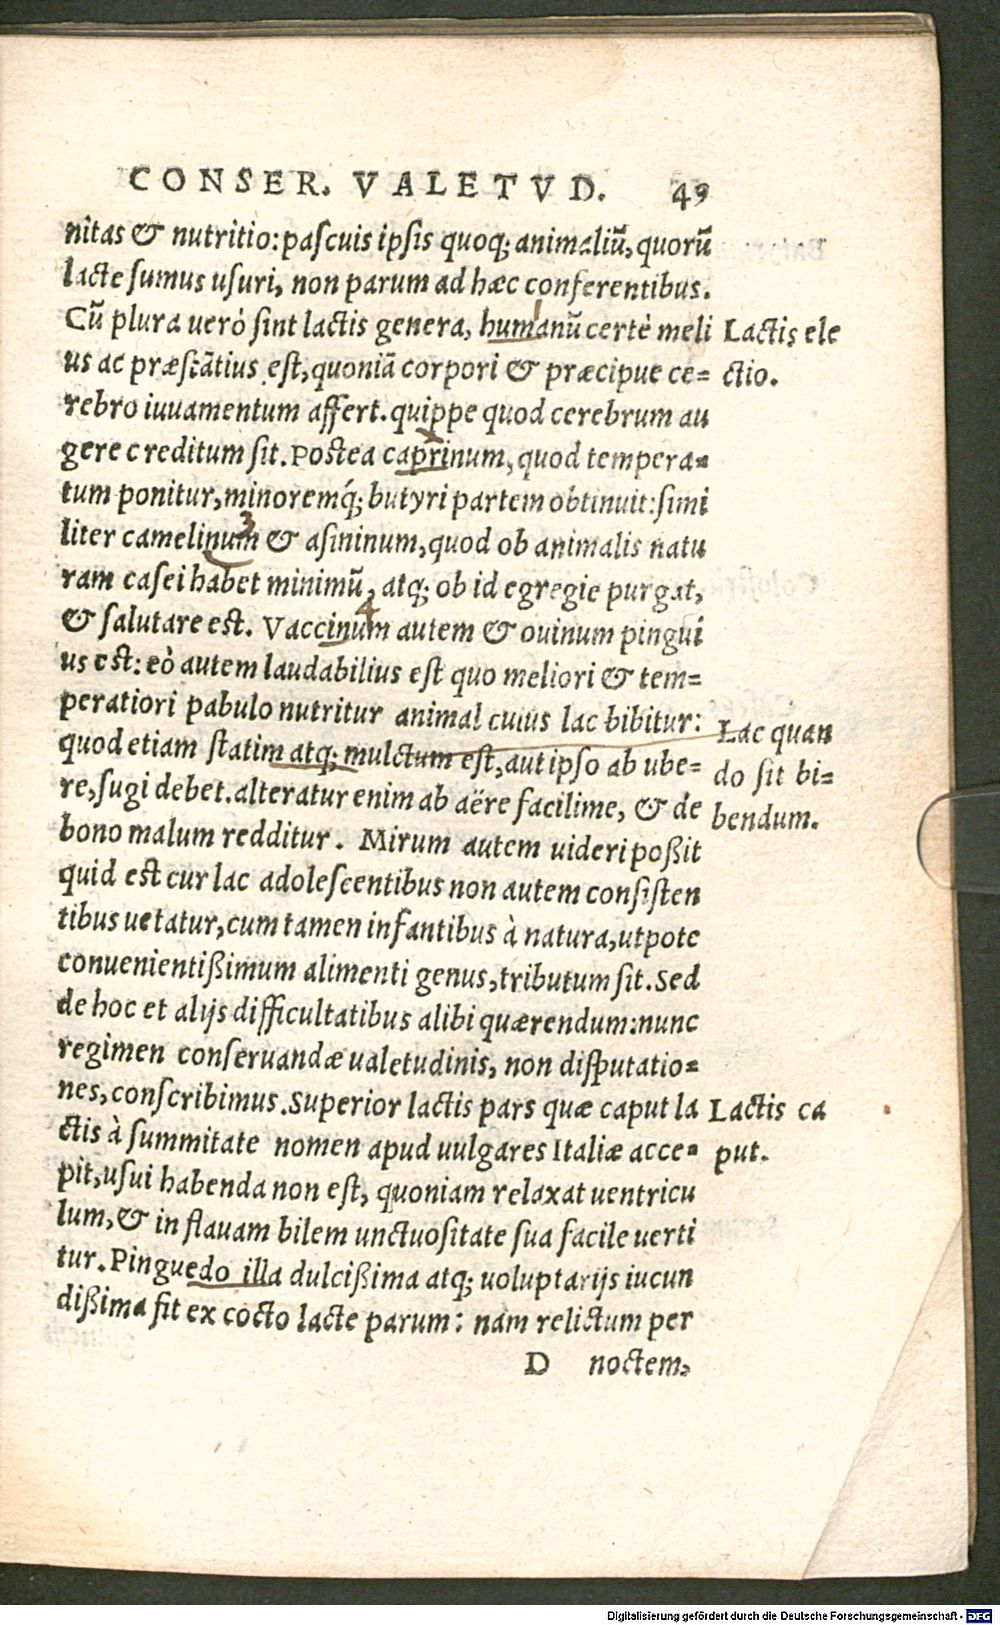 CONSER. VALETVD. 49
nitas & nutritio: pascuis ipsis quoq; animaliũ, quorũ
lacte sumus usuri, non parum ad hæc conferentibus.
Cũ plura uerò sint lactis genera, humanũ certè meli
us ac præstãtius est, quoniã corpori & præcipue ce=
rebro iuuamentum affert. quippe quod cerebrum au
gere creditum sit. Postea caprinum, quod tempera=
tum ponitur, minoremq́; butyri partem obtinuit: simi
liter camelinum & asininum, quod ob animalis natu
ram casei habet minimũ, atq; ob id egregie purgat,
& salutare est. Vaccinum autem & ouinum pingui
us est: eò autem laudabilius est quo meliori & tem=
peratiori pabulo nutritur animal cuius lac bibitur:
quod etiam statim atq; mulctum est, aut ipso ab ube=
re, sugi debet. alteratur enim ab aëre facilime, & de
bono malum redditur. Mirum autem uideri poßit
quid est cur lac adolescentibus non autem consisten
tibus uetatur, cum tamen infantibus à natura, utpote
conuenientißimum alimenti genus, tributum sit. Sed
de hoc et alijs difficultatibus alibi quærendum: nunc
regimen conseruandæ ualetudinis, non disputatio=
nes, conscribimus. Superior lactis pars quæ caput la
ctis à summitate nomen apud uulgares Italiæ acce=
pit, usui habenda non est, quoniam relaxat uentricu
lum, & in flauam bilem unctuositate sua facile uerti
tur. Pinguedo illa dulcißima atq; uoluptarijs iucun
dißima fit ex cocto lacte parum: nam relictum per
D noctem,
Lactis ele
ctio.
Lac quan
do sit bi=
bendum.
Lactis ca
put.
1
2
3
4
Digitalisierung gefördert durch die Deutsche Forschungsgemeinschaft - DFG